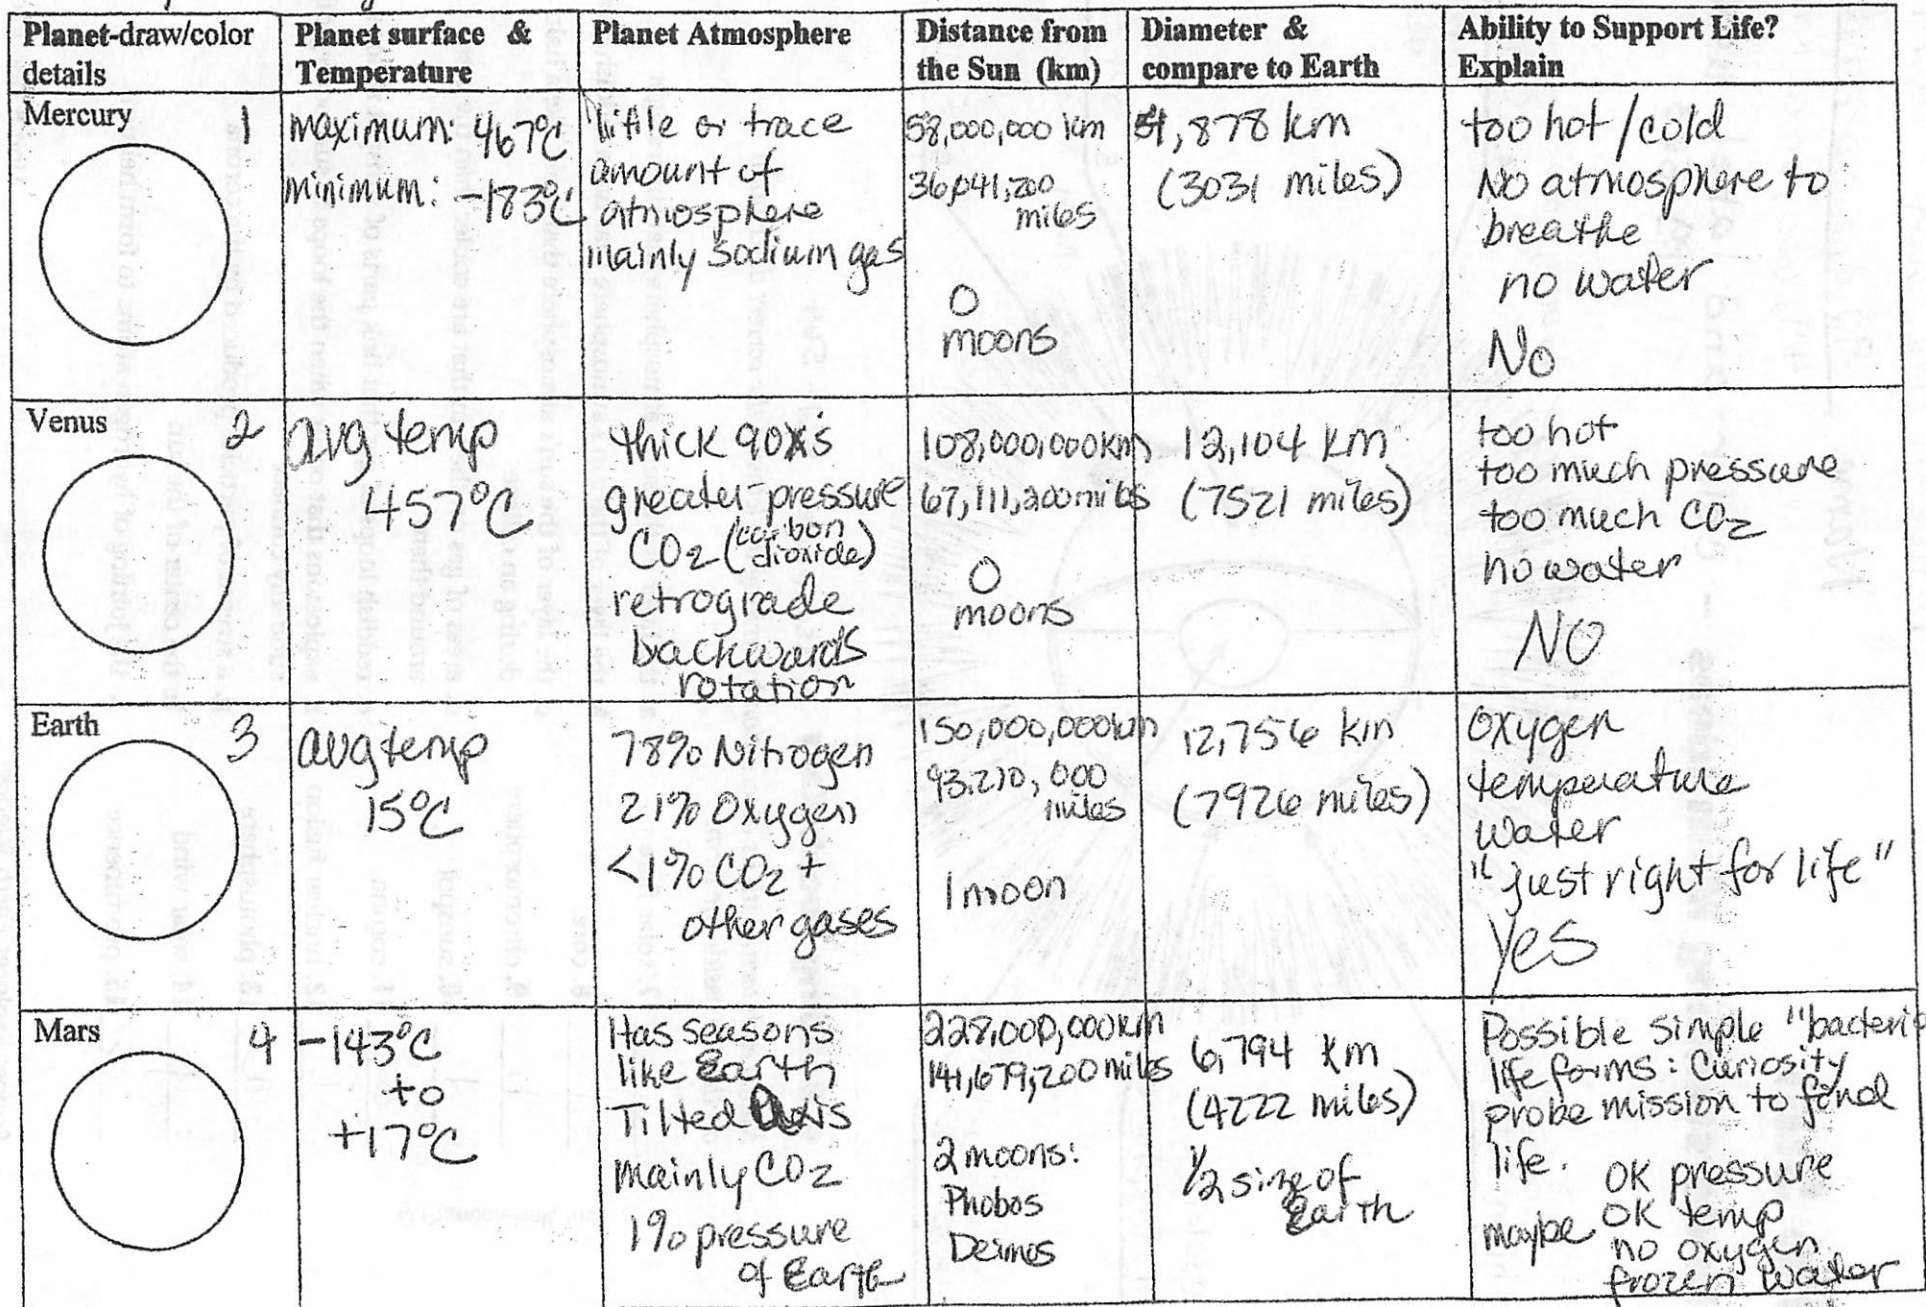 Planet-draw/color details
Planet surface & Temperature
Planet Atmosphere
Distance from the Sun (km)
Diameter & compare to Earth
Ability to Support Life? Explain
Mercury 1
maximum: 467°C
minimum: -183°C
little or trace
amount of
atmosphere
mainly sodium gas
58,000,000 km
36,041,200
miles
0
moons
4,878 km
(3031 miles)
too hot/cold
No atmosphere to
breathe
no water
No
Venus 2
avg temp
457°C
thick 90x's
greater pressure
CO2 (carbon
dioxide)
retrograde
backwards
rotation
108,000,000km
67,111,200miles
0
moons
12,104 km
(7521 miles)
too hot
too much pressure
too much CO2
no water
NO
Earth 3
avg temp
15°C
78% Nitrogen
21% Oxygen
<1% CO2 +
other gases
150,000,000km
93,210,000
miles
1 moon
12,756 km
(7926 miles)
oxygen
temperature
water
"just right for life"
yes
Mars 4
-143°C
to
+17°C
Has seasons
like Earth
Tilted Axis
mainly CO2
1% pressure
of Earth
228,000,000km
141,679,200miles
2 moons:
Phobos
Deimos
6,794 km
(4222 miles)
1/2 size of
Earth
Possible simple "bacteria
life forms: Curiosity
probe mission to find
life.
OK pressure
maybe OK temp
no oxygen
frozen water